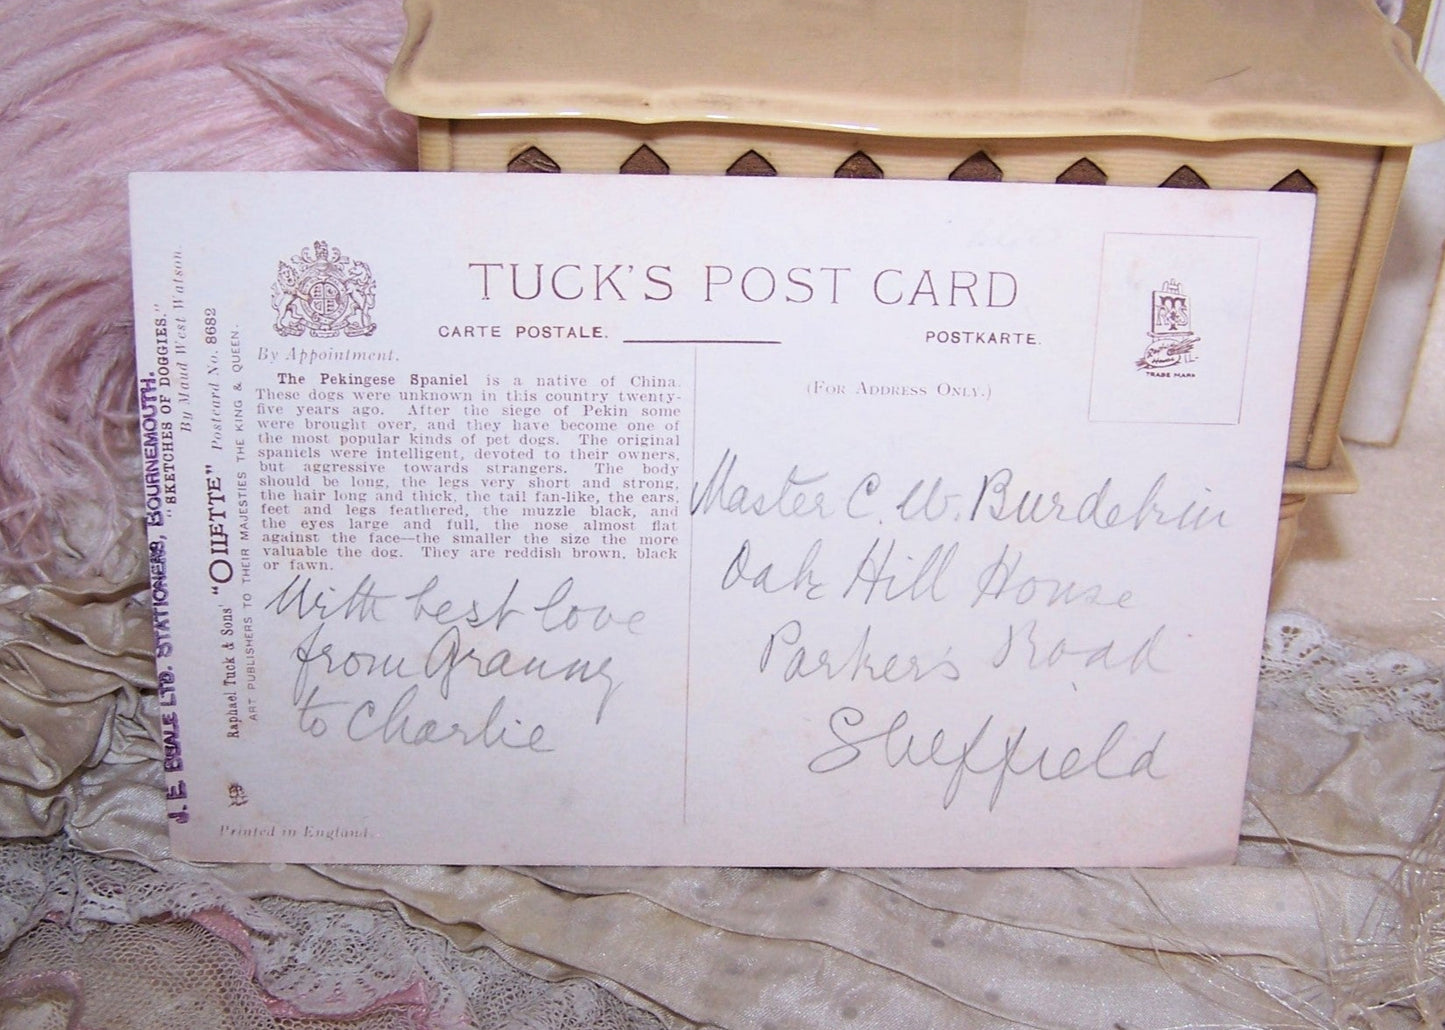 TUCK'S POST CARD
CARTE POSTALE.
POSTKARTE.
By Appointment.
(FOR ADDRESS ONLY.)
TRADE MARK
The Pekingese Spaniel is a native of China.
These dogs were unknown in this country twenty-
five years ago. After the siege of Pekin some
were brought over, and they have become one of
the most popular kinds of pet dogs. The original
spaniels were intelligent, devoted to their owners,
but aggressive towards strangers. The body
should be long, the legs very short and strong,
the hair long and thick, the tail fan-like, the ears,
feet and legs feathered, the muzzle black, and
the eyes large and full, the nose almost flat
against the face—the smaller the size the more
valuable the dog. They are reddish brown, black
or fawn.
With best love
from Granny
to Charlie
Master C. W. Burdekin
Oak Hill House
Parker's Road
Sheffield
J. E. BEALE LTD. STATIONERS, BOURNEMOUTH.
"SKETCHES OF DOGGIES."
By Maud West Watson.
Raphael Tuck & Sons' "OILETTE" Postcard No. 8682
ART PUBLISHERS TO THEIR MAJESTIES THE KING & QUEEN.
Printed in England.